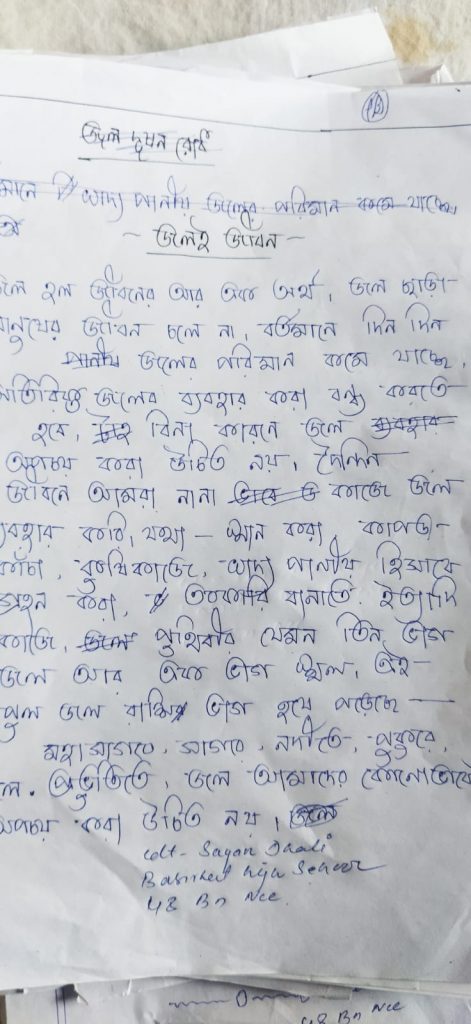 জল দূষন রোধ
মানে খাদ্য পানীয় জলের পরিমান কমে যাচ্ছে,
- জলই জীবন -
জল হল জীবনের আর এক অর্থ, জল ছাড়া
মানুষের জীবন চলে না, বর্তমানে দিন দিন
পানীয় জলের পরিমান কমে যাচ্ছে,
অতিরিক্ত জলের ব্যবহার করা বন্ধ করতে
হবে, বিনা কারনে জল ব্যবহার
অপচয় করা উচিত নয়, দৈনন্দিন
জীবনে আমরা নানা ভাবে কাজে জল
ব্যবহার করি, যথা - স্নান করা, কাপড়-
কাঁচা, কৃষিকাজে, খাদ্য পানীয় হিসাবে
গ্রহন করা, তরকারি বানাতে. ইত্যাদি
কাজে, জল পৃথিবীর যেমন তিন ভাগ
জল আর এক ভাগ স্থল, এই-
জল ভাগ হয়ে পড়েছে —
মহাসাগরে, সাগরে, নদীতে, পুকুরে,
প্রভৃতিতে, জল আমাদের কোনোভাবে
অপচয় করা উচিত নয়, জল
Cdt- Sayan Dhali
High School
48 Bn Ncc.
0
48 Bn Ncc